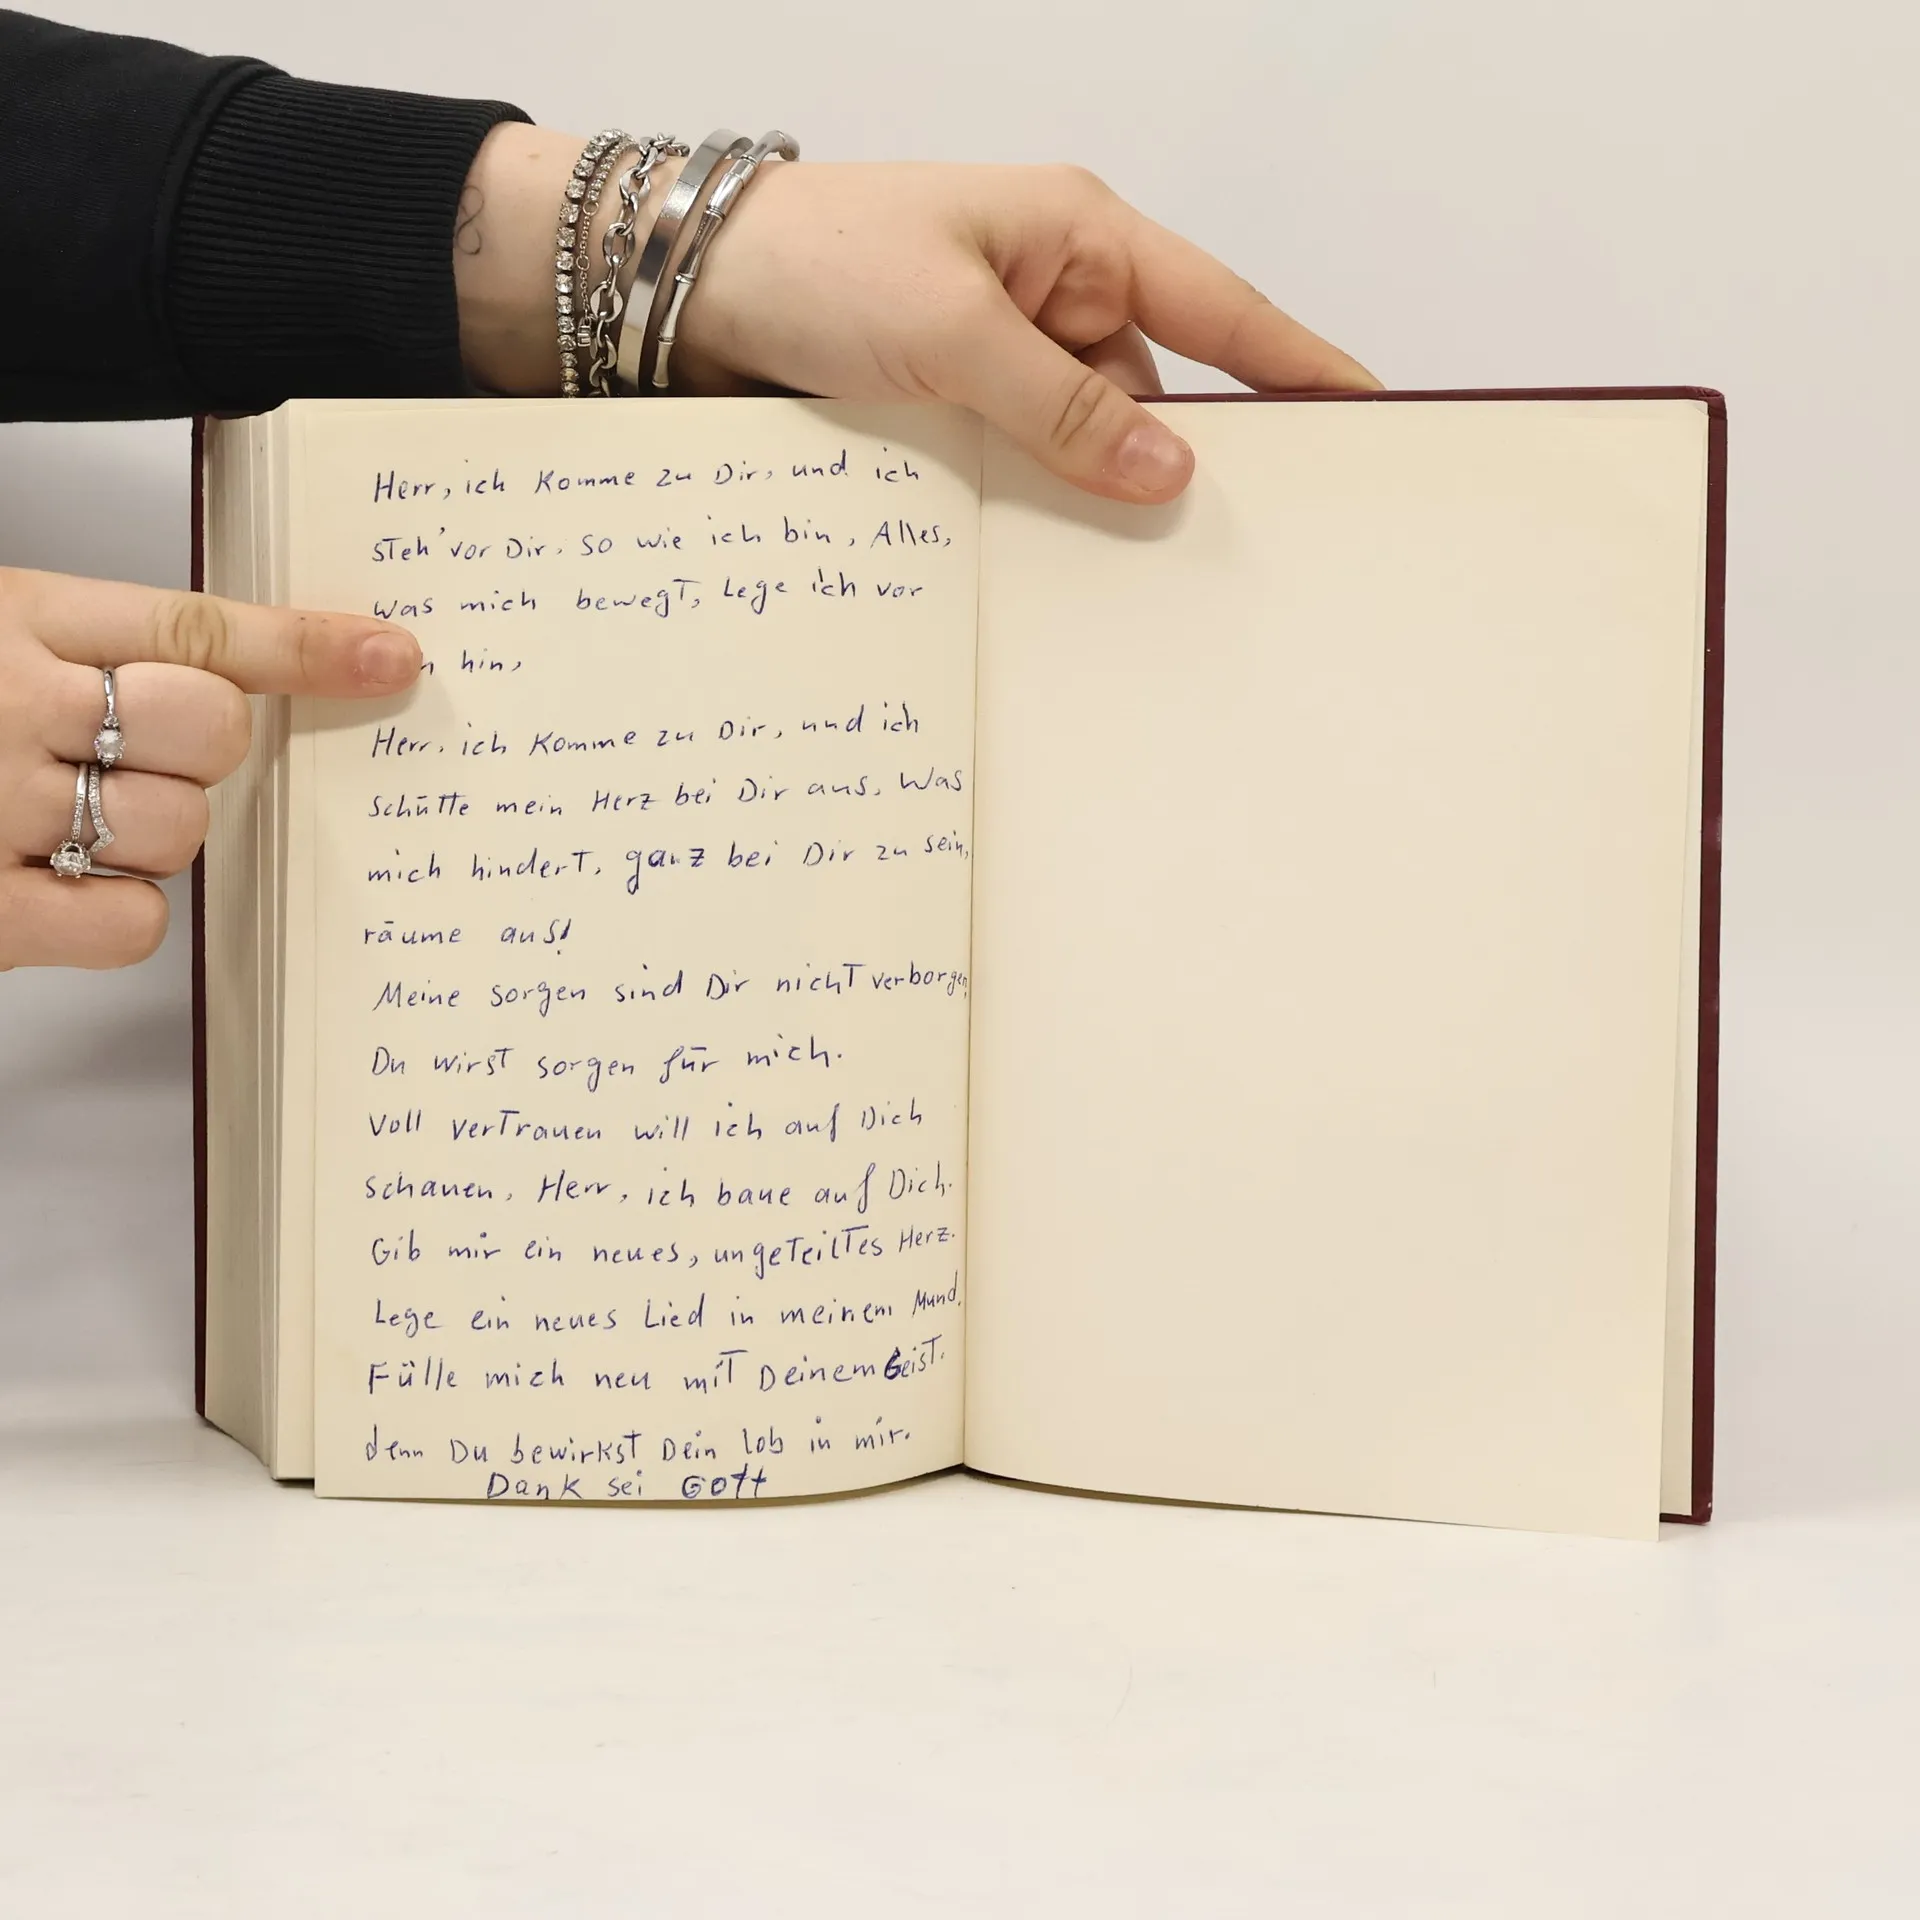 Herr, ich Komme zu Dir, und ich
steh' vor Dir, so wie ich bin, Alles,
was mich bewegt, Lege ich vor
hin,
Herr, ich Komme zu Dir, und ich
schütte mein Herz bei Dir aus, Was
mich hindert, ganz bei Dir zu sein,
räume aus!
Meine sorgen sind Dir nicht verborgen,
Du wirst sorgen für mich.
Voll vertrauen will ich auf Dich
schauen, Herr, ich baue auf Dich.
Gib mir ein neues, ungeteiltes Herz.
Lege ein neues Lied in meinem Mund.
Fülle mich neu mit Deinem Geist.
denn Du bewirkst Dein lob in mir.
Dank sei Gott